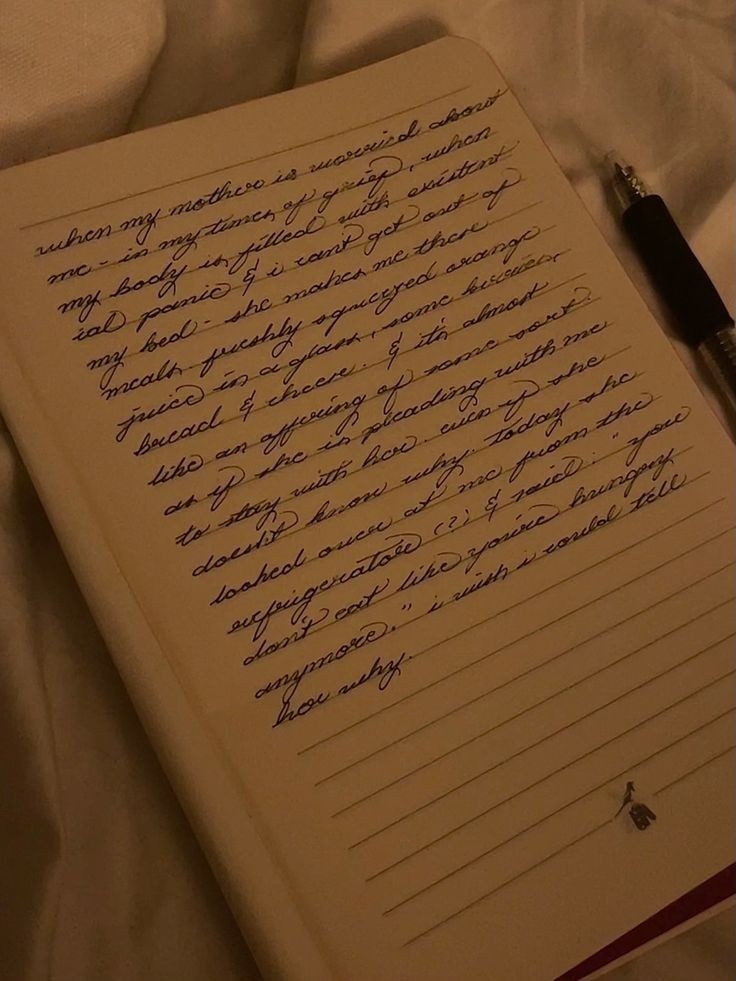 when my mother is worried about
me - in my times of grief, when
my body is filled with existent
ial panic & i can't get out of
my bed - she makes me these
meals. freshly squeezed orange
juice in a glass, some
bread & cheese. & it's almost
like an offering of some sort.
as if she is pleading with me
to stay with her. even if she
doesn't know why. today she
looked over at me from the
refrigerator (?) & said: "you
don't eat like you're hungry
anymore." i wish i could tell
her why.